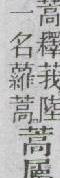 蒿釋莪陸
一名蘿蒿
蒿屬